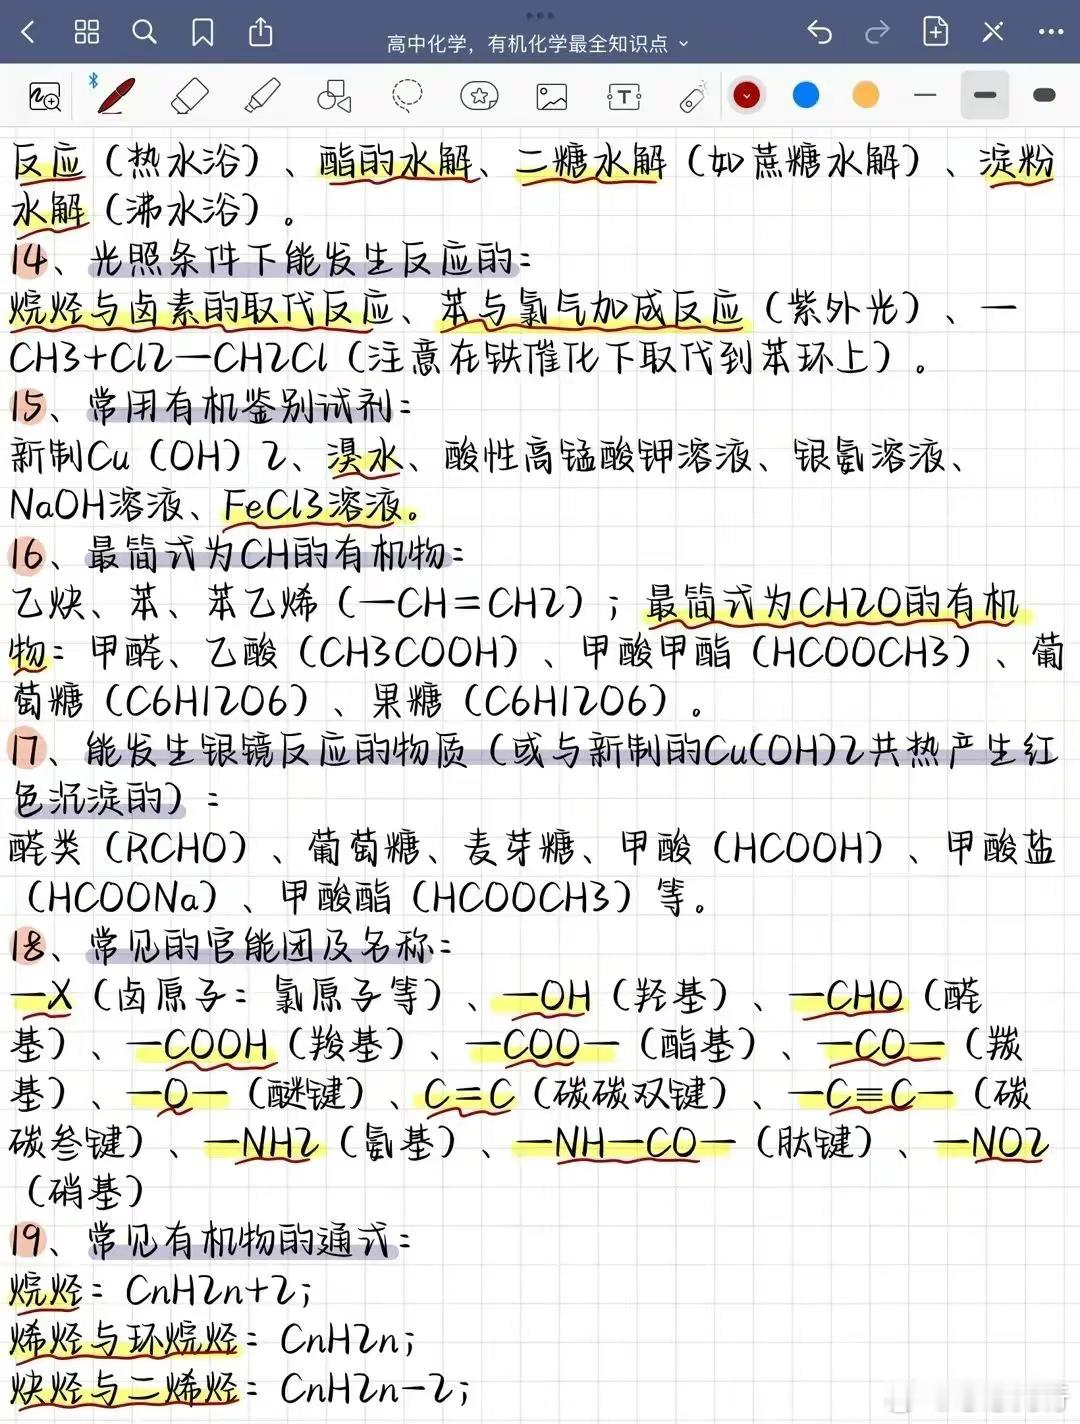 高中化学，有机化学最全知识点
反应（热水浴）、酯的水解、二糖水解（如蔗糖水解）、淀粉
水解（沸水浴）。
14、光照条件下能发生反应的：
烷烃与卤素的取代反应、苯与氯气加成反应（紫外光）、—
CH3+Cl2—CH2Cl（注意在铁催化下取代到苯环上）。
15、常用有机鉴别试剂：
新制Cu（OH）2、溴水、酸性高锰酸钾溶液、银氨溶液、
NaOH溶液、FeCl3溶液。
16、最简式为CH的有机物：
乙炔、苯、苯乙烯（—CH=CH2）；最简式为CH2O的有机
物：甲醛、乙酸（CH3COOH）、甲酸甲酯（HCOOCH3）、葡
萄糖（C6H12O6）、果糖（C6H12O6）。
17、能发生银镜反应的物质（或与新制的Cu(OH)2共热产生红
色沉淀的）：
醛类（RCHO）、葡萄糖、麦芽糖、甲酸（HCOOH）、甲酸盐
（HCOONa）、甲酸酯（HCOOCH3）等。
18、常见的官能团及名称：
—X（卤原子：氯原子等）、—OH（羟基）、—CHO（醛
基）、—COOH（羧基）、—COO—（酯基）、—CO—（羰
基）、—O—（醚键）、C=C（碳碳双键）、—C≡C—（碳
碳叁键）、—NH2（氨基）、—NH—CO—（肽键）、—NO2
（硝基）
19、常见有机物的通式：
烷烃：CnH2n+2；
烯烃与环烷烃：CnH2n；
炔烃与二烯烃：CnH2n-2；